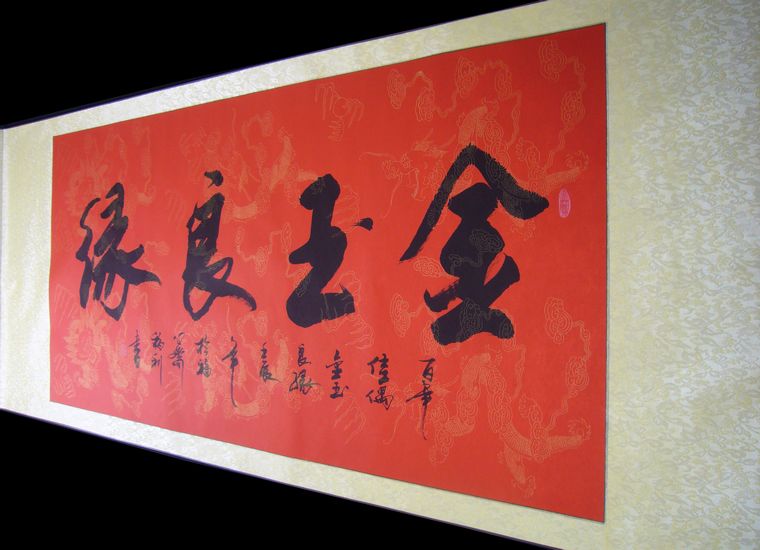 金玉良缘
百年
佳偶
金玉
良缘
壬辰
年
於福
书